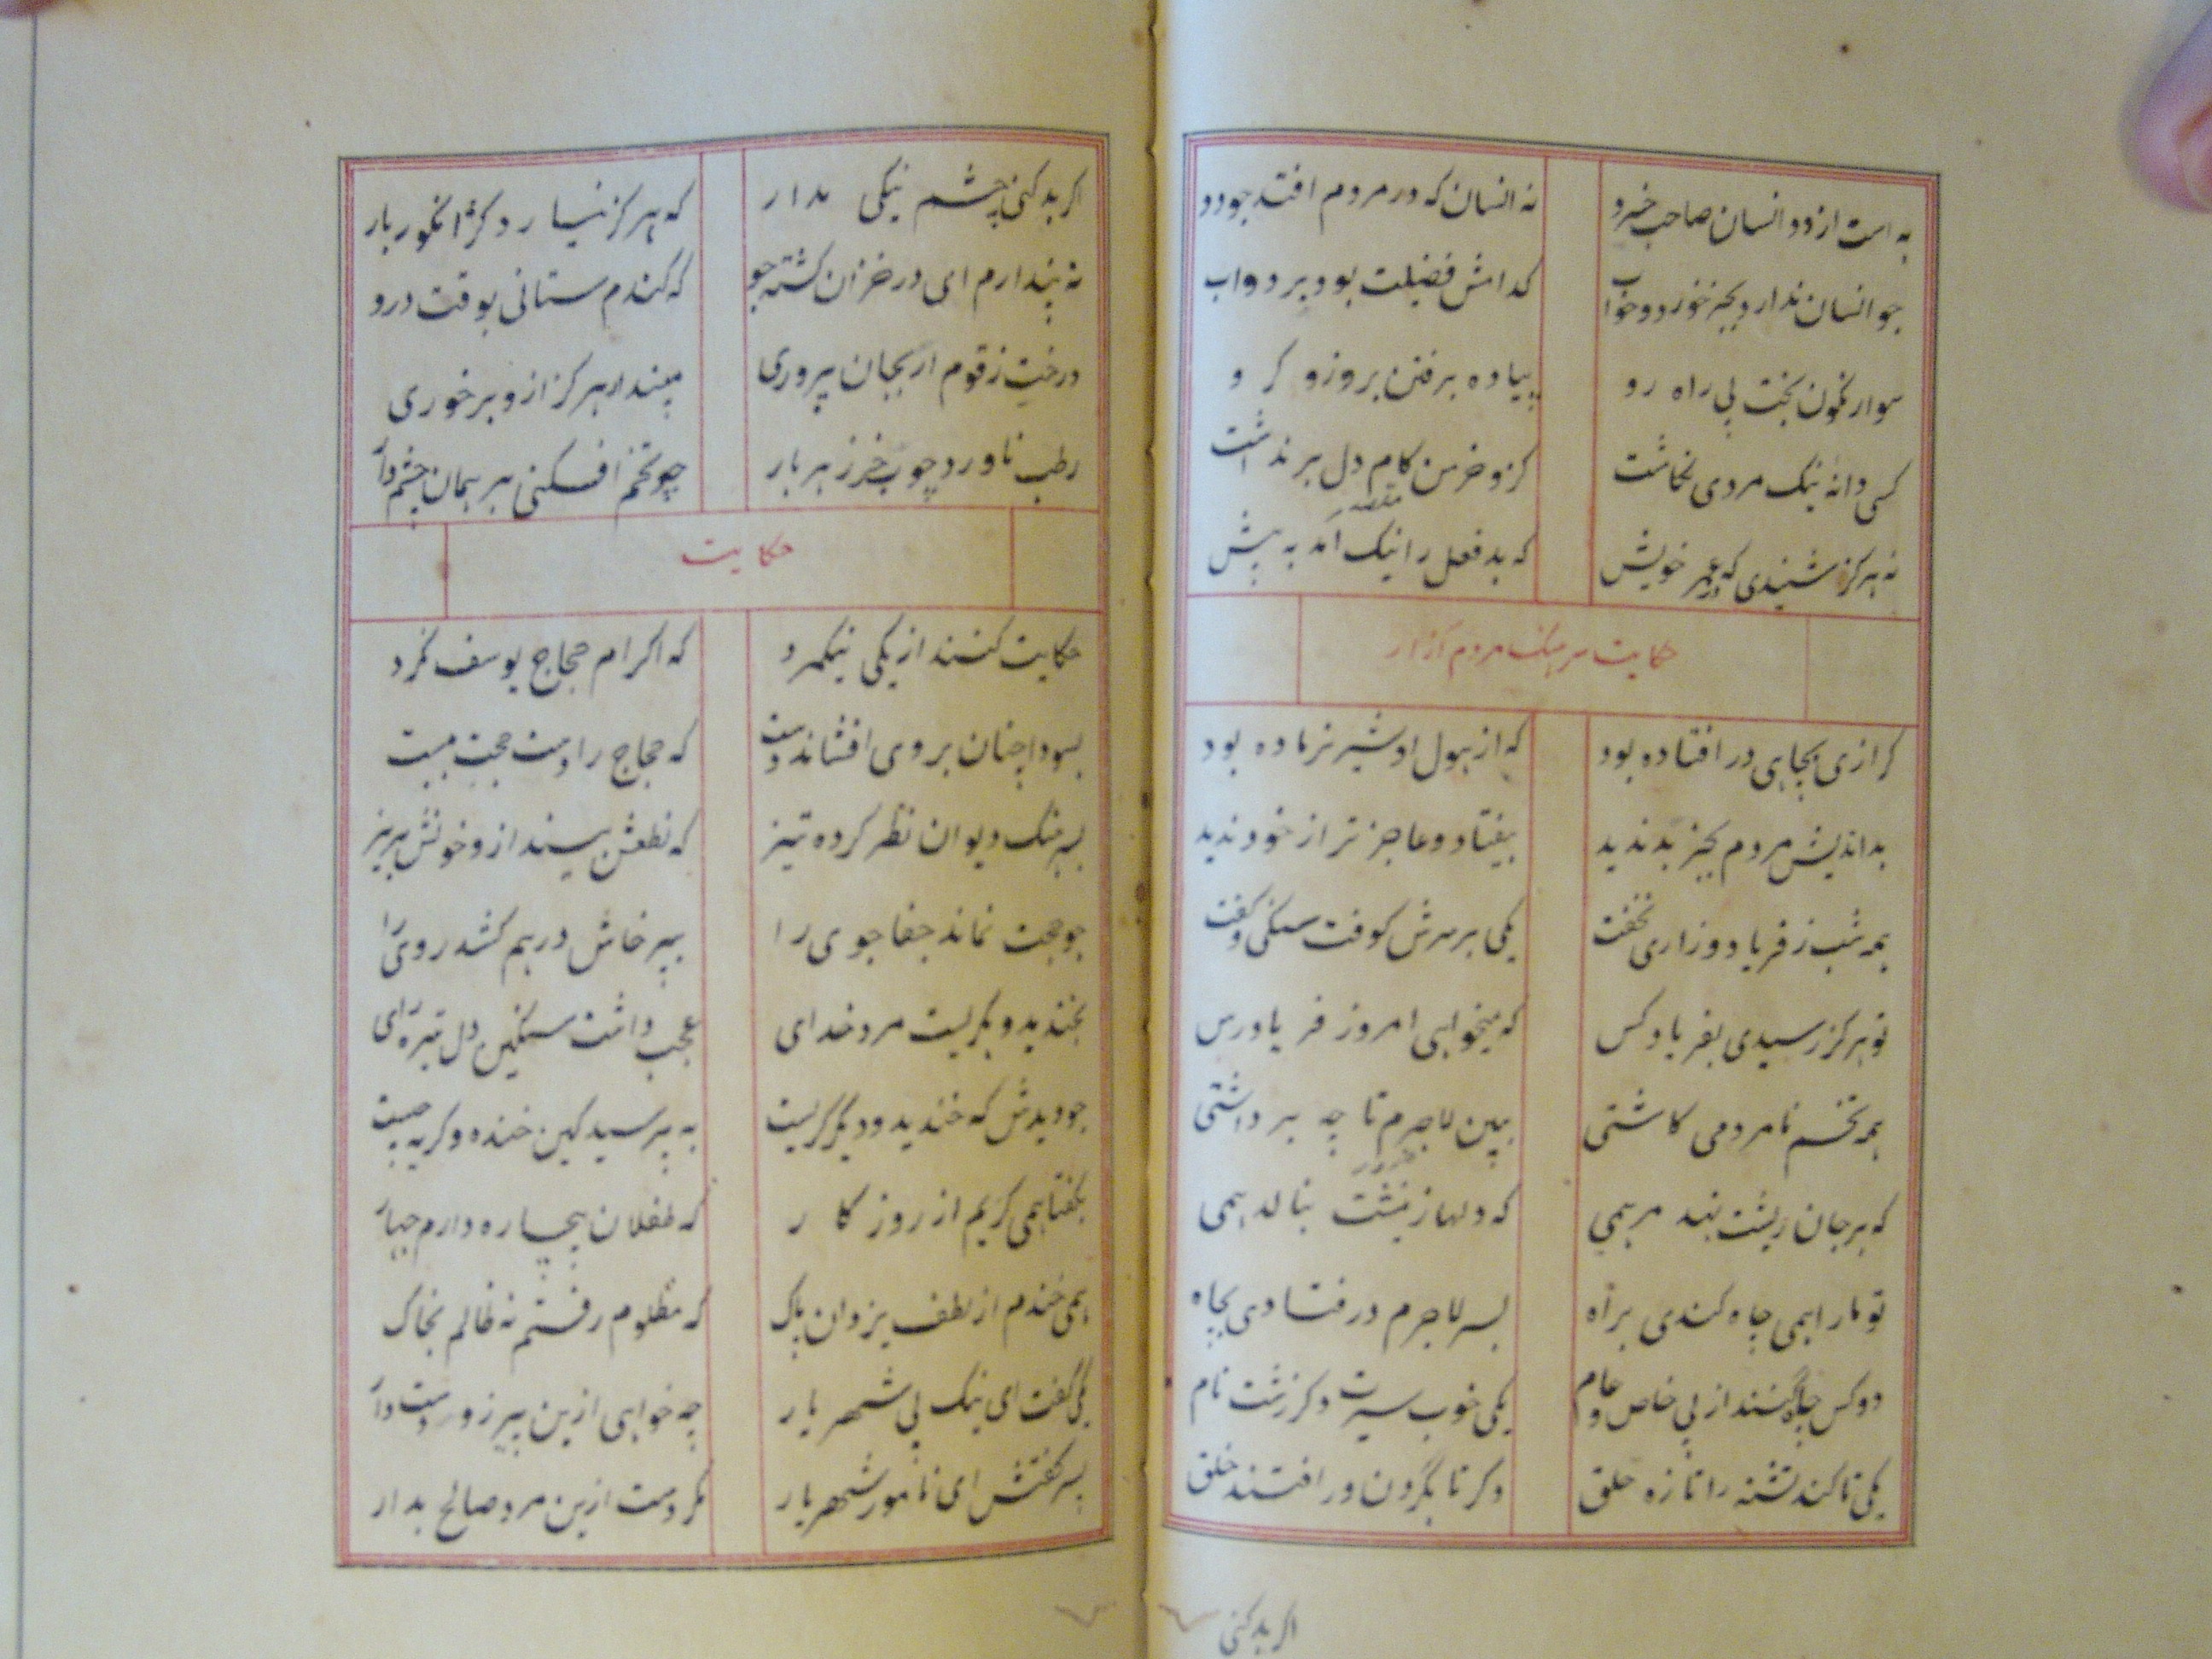 به است از دد انسان صاحب خرد نه انسان که در مردم افتد جو دد
جو انسان نداند بجز خورد و خواب کدامش فضیلت بود بر دواب
سوار نکون بخت بی راه رو پیاده برفتن برو زو کر و
کسی دانهٔ نیک مردی نکاشت کزو خرمن کام دل بر نداشت
نه هرکز شنیدی که در عمر خویش که بد فعل را نیک آمد به پیش
حکایت سرهنک مردم آزار
کزازی بچاهی در افتاده بود که از هول او شیر نر ماده بود
بداندیش مردم بجز بد ندید بیفتاد و عاجز تر از خود ندید
همه شب ز فریاد و زاری نخفت یکی بر سرش کوفت سنکی و کفت
تو هرکز رسیدی بفریاد کس که میخواهی امروز فریادرس
همه تخم نامردمی کاشتی ببین لاجرم تا چه بر داشتی
که بر جان ریشت نهد مرهمی که دلها ز نیشت بنالد همی
تو ما را همی چاه کندی براه بسر لاجرم در فتادی بچاه
دو کس چاه کنند از پی خاص و عام یکی خوب سیرت دکر زشت نام
یکی تا کند تشنه را تازه حلق دکر تا بکردن در افتند خلق
اکر بد کنی
اکر بد کنی چشم نیکی مدار که هرکز نیارد کز انکور بار
نه پندارم ای در خزان کشته جو که کندم ستانی بوقت درو
درخت زقوم ار بجان پروری مپندار هرکز ازو بر خوری
رطب ناورد چوب خرزهره بار چو تخم افکنی بر همان چشم دار
حکایت
حکایت کنند از یکی نیکمرد که اکرام حجاج یوسف نکرد
بسودا چنان بر وی افشاند دست که حجاج را دست حجت ببست
بسرهنک دیوان نظر کرد تیز که نطعش بینداز و خونش بریز
جو حجت نماند جفاجوی را بپرخاش در هم کشد روی را
بخندید و بکریست مرد خدای عجب داشت سنکین دل تیره رای
جو دیدش که خندید و دیکر کریست به پرسید کین خنده و کریه چیست
بکفتا همی کریم از روزکار که طفلان بیچاره دارم چهار
همی خندم از لطف یزدان پاک که مظلوم رفتم نه ظالم بخاک
یکی کفت ای نیک پی شهریار چه خواهی ازین پیر زو دست دار
پسر کفتش ای نامور شهریار مکر دست ازین مرد صالح بدار